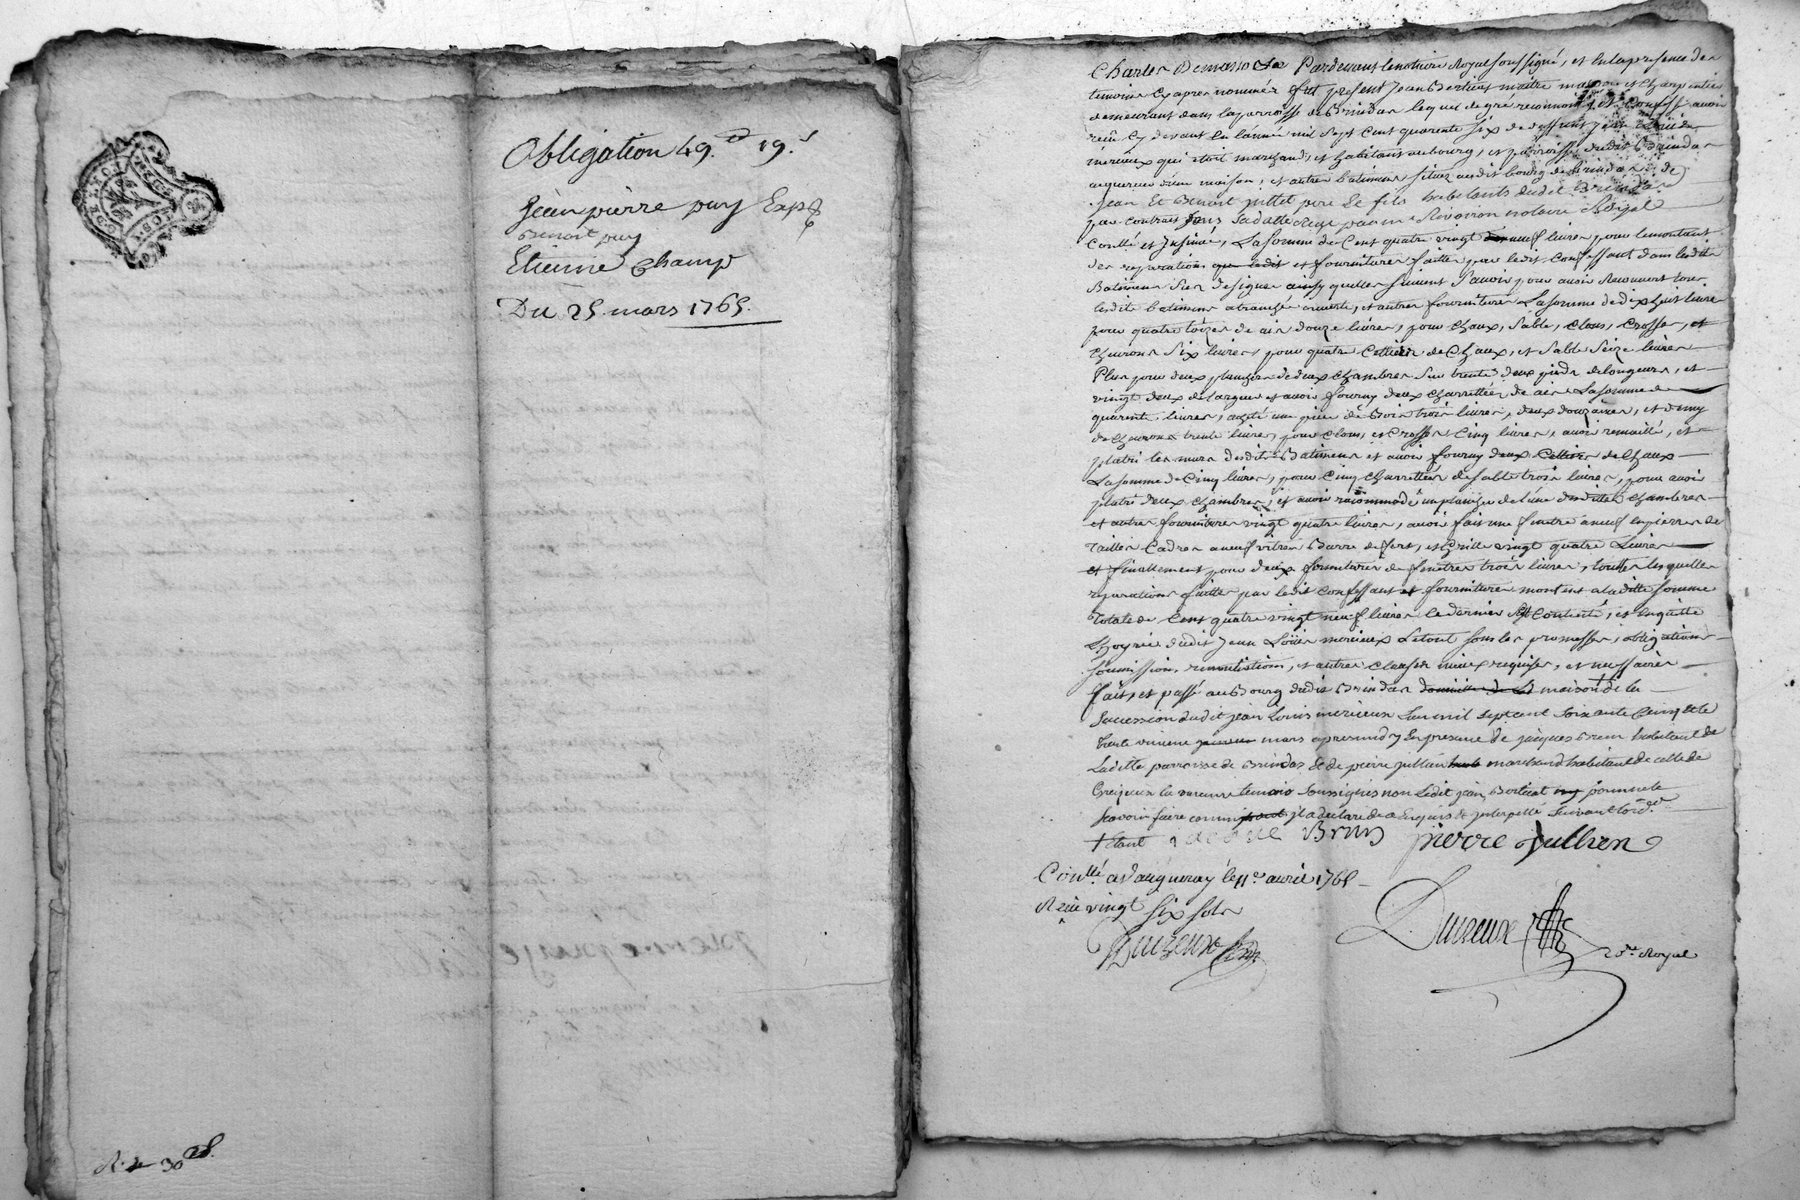 Obligation 49.# 19.s
Jean pierre puy
Benoit puy
Etienne Champ
Du 25. mars 1765.
R. le 30
Pardevant le notaire Royal soussigné, et en la presence des
temoins cy apres nommés fut present Jean Bertieat maitre masson et charpentier
demeurant dans la parroisse de Brindas lequel de gré reconnoit et confesse avoir
reçu cy devant en l'année mil sept cent quarente six de deffunt jean Loüis
merieux qui etoit marchand, et habitant au bourg, et parroisse dudit Brindas
acquereur d'une maison, et autres batimens situez audit bourg de Brindas de
Jean Et Benoit jullet pere Et fils habitants dudit Brindas
par contrat sous sa datte reçu par me notaire Royal
Conllé et Insinué, La somme de Cent quatre vingt neuf livres pour le montant
des reparations et fournitures faittes par ledit Confessant dans lesdits
Batimens designés ainsy quelles suivent Savoir pour avoir
lesdits batimens et autres fournitures La somme de dix huit livres
pour quatre toizes de ais douze livres, pour chaux, Sable, Clous, Crosses, et
chevrons Six livres, pour quatre de Chaux, et Sable Seize livres
Plus pour deux planchers de deux chambres Sur trente deux pieds de longueur, et
vingt deux de largeur et avoir fourny deux charrettées de ais La somme de
quarente livres, achetté une piece de Bois trois livres, deux douzaines, et demy
de chevrons trente livres, pour clous, et crosses Cinq livres, avoir remaillé, et
platri les murs desdits Batimens et avoir fourny deux de Chaux
La somme de Cinq livres, pour Cinq charrettées de sable trois livres, pour avoir
platré deux chambres, et avoir racommodé un plancher de l'une desdittes chambres
et autres fournitures vingt quatre livres, avoir fait une fenetre a neuf en pierres de
Tailles Cadres a neuf vitres Barre de fert, et grille vingt quatre Livres
et finallement pour deux fournitures de fenetres trois livres, toutes lesquelles
reparations faittes par ledit Confessant et fournitures montent a la ditte somme
Totale de Cent quatre vingt neuf livres le dernier et
L'hoyrie dudit Jean Loüis merieux Le tout sous les promesses, obligations
soumission, renontiations, et autres clauses mieux requises, et nessaires
fait, et passé au Bourg dudit Brindas maison + de la
sucession dudit jean Louis merieux L'an mil sept cent soixante Cinq Et le
trente unieme mars apres midy En presence de jacques Brun habitant de
Laditte parroisse de Brindas Et de pierre jullien marchand habitant de celle de
Grezieux la varenne temoins soussignés non Ledit jean Bertieat pour ne le
sçavoir faire comme il a declaré de ce Enquis Et interpellé suivant l'ordce
+ Etant jacque Brun pierre jullien
Conllé a Vaugneray le 11e. avril 1765
Reçu vingt six sols
Duizeux
Duizeux
nre. Royal